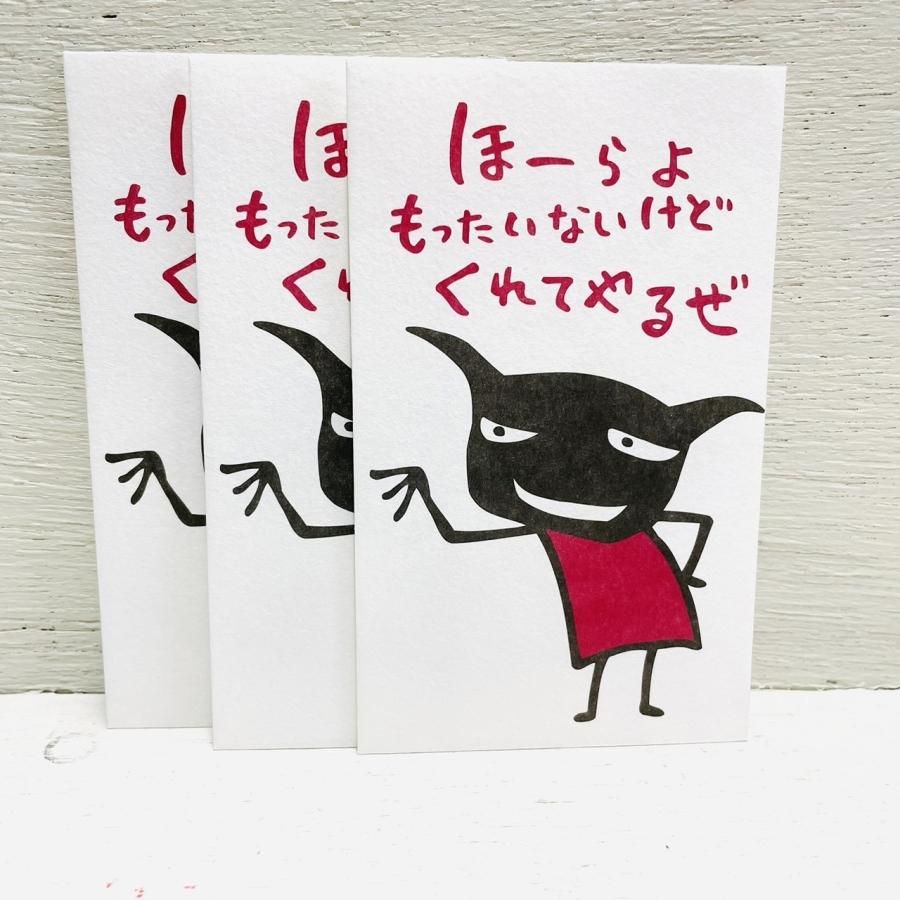 ほーらよ
もったいないけど
くれてやるぜ